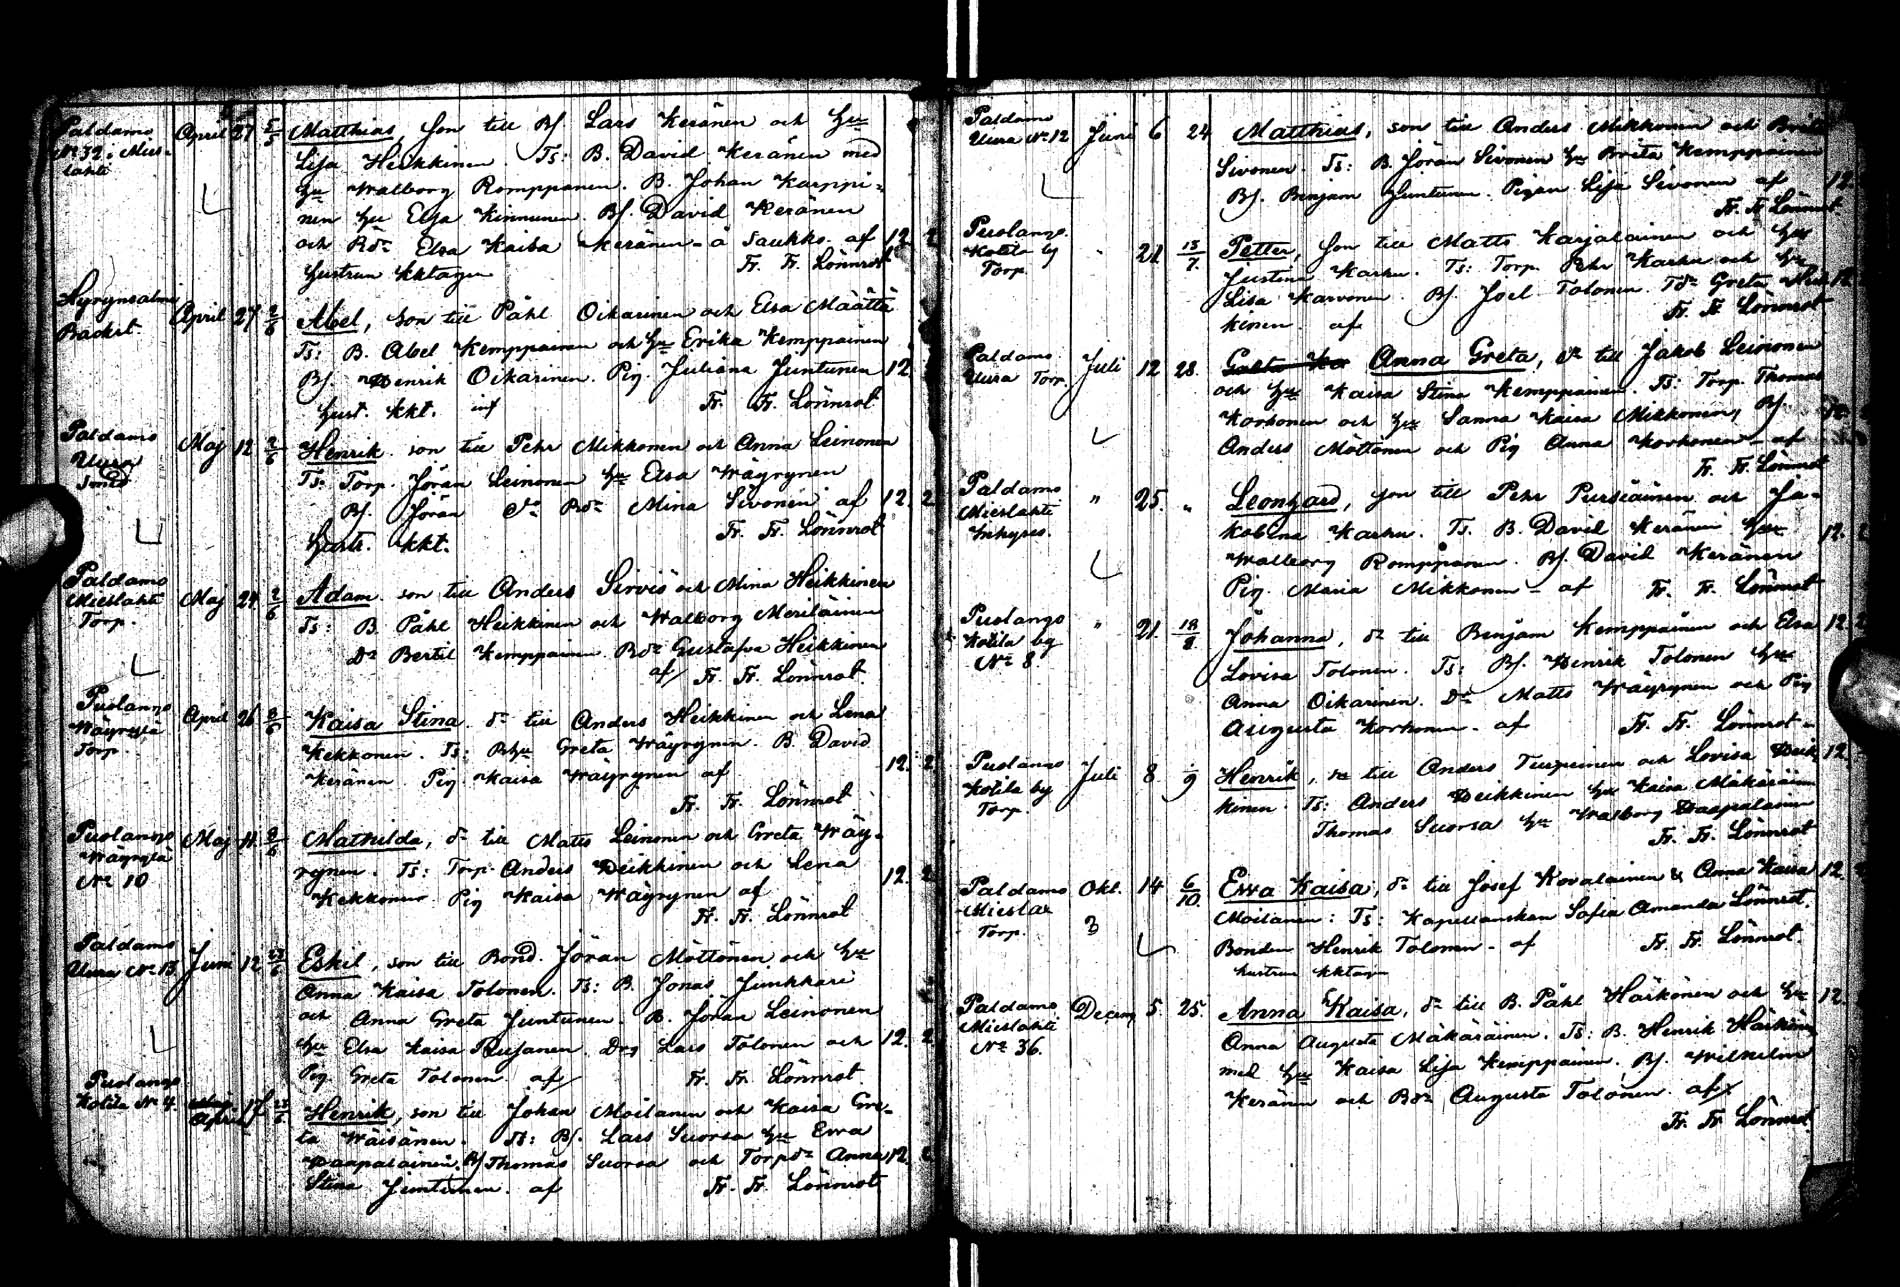 Paldamo
No 32 i Mies-
lahti
April 27 5/5
Matthias, son till Bs. Lars Keränen och Hu
Lisa Heikkinen. Ts: B. David Keränen med
Hu Walborg Romppanen. B. Johan Karppi-
nen Hu Elsa Kinnunen Bs. David Keränen
och Bdr Elsa Kaisa Keränen å Saukko. af 12. 2
hustrun kktagen Fr. Fr. Lönnrot
Hyrynsalmi
Backst.
April 27 2/6
Abel, son till Påhl Oikarinen och Elsa Määttä
Ts: B. Abel Kemppainen och Hu Erika Kemppainen
Bs. Henrik Oikarinen. Pig. Juliana Juntunen 12.
hust. kkt. af Fr. Fr. Lönnrot
Paldamo
Uura
Smed
Maj 12 2/6
Henrik son till Pehr Mikkonen och Anna Leinonen
Ts. Torp. Jöran Leinonen Hu Elsa Wäyrynen
Bs. Jöran Mina Sivonen af 12. 2
hustr. kkt. Fr. Fr. Lönnrot
Paldamo
Mieslahti
Torp.
Maj 24 2/6
Adam son till Anders Sirviö och Mina Heikkinen
Ts: B. Påhl Heikkinen och Walborg Meriläinen
Dr Bertil Kemppainen Bdr Gustafva Heikkinen
af Fr. Fr. Lönnrot
Puolango
Wäyrylä
Torp.
April 26 8/6
Kaisa Stina. dr till Anders Heikkinen och Lena
Kekkonen. Ts: Greta Wäyrynen. B. David
Keränen Pig. Kaisa Wäyrynen af 12. 2
Fr. Fr. Lönnrot
Puolango
Wäyrylä
No 10
Maj 11. 8/6
Mathilda, dr till Matts Leinonen och Greta Wäy-
rynen. Ts: Torp. Anders Heikkinen och Lena
Kekkonen Pig Kaisa Wäyrynen af 12. 2
Fr. Fr. Lönnrot
Paldamo
Uura No 13.
Juni 12 23/6
Eskil, son till Bond. Jöran Möttönen och Hu
Anna Kaisa Tolonen. Ts: B. Jonas Junkkari
och Anna Greta Juntunen. B. Jöran Leinonen
Hu Elsa Kaisa Rusanen. Dr Lars Tolonen och 12. 2
Pig Greta Tolonen. af Fr. Fr. Lönnrot
Puolango
Kotila No 4
April 17 23/6
Henrik, son till Johan Moilanen och Kaisa Gre-
ta Wäisänen. Ts: Bs. Lars Suorsa Hu Ewa
Haapalainen. Bs Thomas Suorsa och Torpdr Anna 12. 2
Stina Juntunen. af Fr. Fr. Lönnrot
Paldamo
Uura No 12
Juni 6 24
Matthias, son till Anders Mikkonen och Brita
Sivonen. Ts: B. Jöran Sivonen Hu Brita Kemppainen
Bs. Benjam Juntunen. Pigan Lisa Sivonen af 12.
Fr. Fr. Lönnrot.
Puolango
Kotila by
Torp.
" 21 13/7.
Petter, son till Matts Karjalainen och Hu
Justina Karhu. Ts: Torp. Pehr Karhu och Hu
Lisa Karvonen. Bs. Joel Tolonen. Tdr Greta Heik- 12.
kinen. af Fr. Fr. Lönnrot
Paldamo
Uura Torp.
Juli 12 28.
Anna Greta, dr till Jakob Leinonen
och Hu Kaisa Stina Kemppainen. Ts: Torp. Thomas
Korhonen och Hu Sanna Kaisa Mikkonen, Bs.
Anders Möttönen och Pig Anna Korhonen – af
Fr. Fr. Lönnrot
Paldamo
Mieslahti
Inhyses.
" 25. "
Leonhard, son till Pehr Pursiainen och Ja-
kobina Karhu. Ts. B. David Keränen Hu 12.
Walborg Romppanen. Bs. David Keränen
Pig. Maria Mikkonen – af Fr. Fr. Lönnrot
Puolango
Kotila by
No 8
" 21. 18/8.
Johanna, dr till Benjam Kemppainen och Elsa 12.
Lovisa Tolonen. Ts: Bs. Henrik Tolonen Hu
Anna Oikarinen. Dr Matts Wäyrynen och Pig
Augusta Korhonen. af Fr. Fr. Lönnrot
Puolango
Kotila by
Torp.
Juli 8. 1/9
Henrik, sn till Anders Turpeinen och Lovisa Heik- 12.
kinen. Ts: Anders Heikkinen Hu Kaisa Mäkäräinen
Thomas Suorsa Hu Walborg Haapalainen
Fr. Fr. Lönnrot
Paldamo
Mieslax
Torp.
Okt. 14 6/10.
3
Ewa Kaisa, dr till Josef Kovalainen & Anna Kaisa 12.
Moilanen: Ts: Kapellanskan Sofia Amanda Lönnrot.
Bonden Henrik Tolonen – af Fr. Fr. Lönnrot.
hustrun kktagn
Paldamo
Mieslahti
No 36.
Decem 5. 25.
Anna Kaisa, dr till B. Påhl Härkönen och Hu 12.
Anna Augusta Mäkäräinen. Ts: B. Henrik Härkönen
med Hu Kaisa Lisa Kemppainen. Bs. Wilhelm
Keränen och Bdr Augusta Tolonen. af
Fr. Fr. Lönnrot